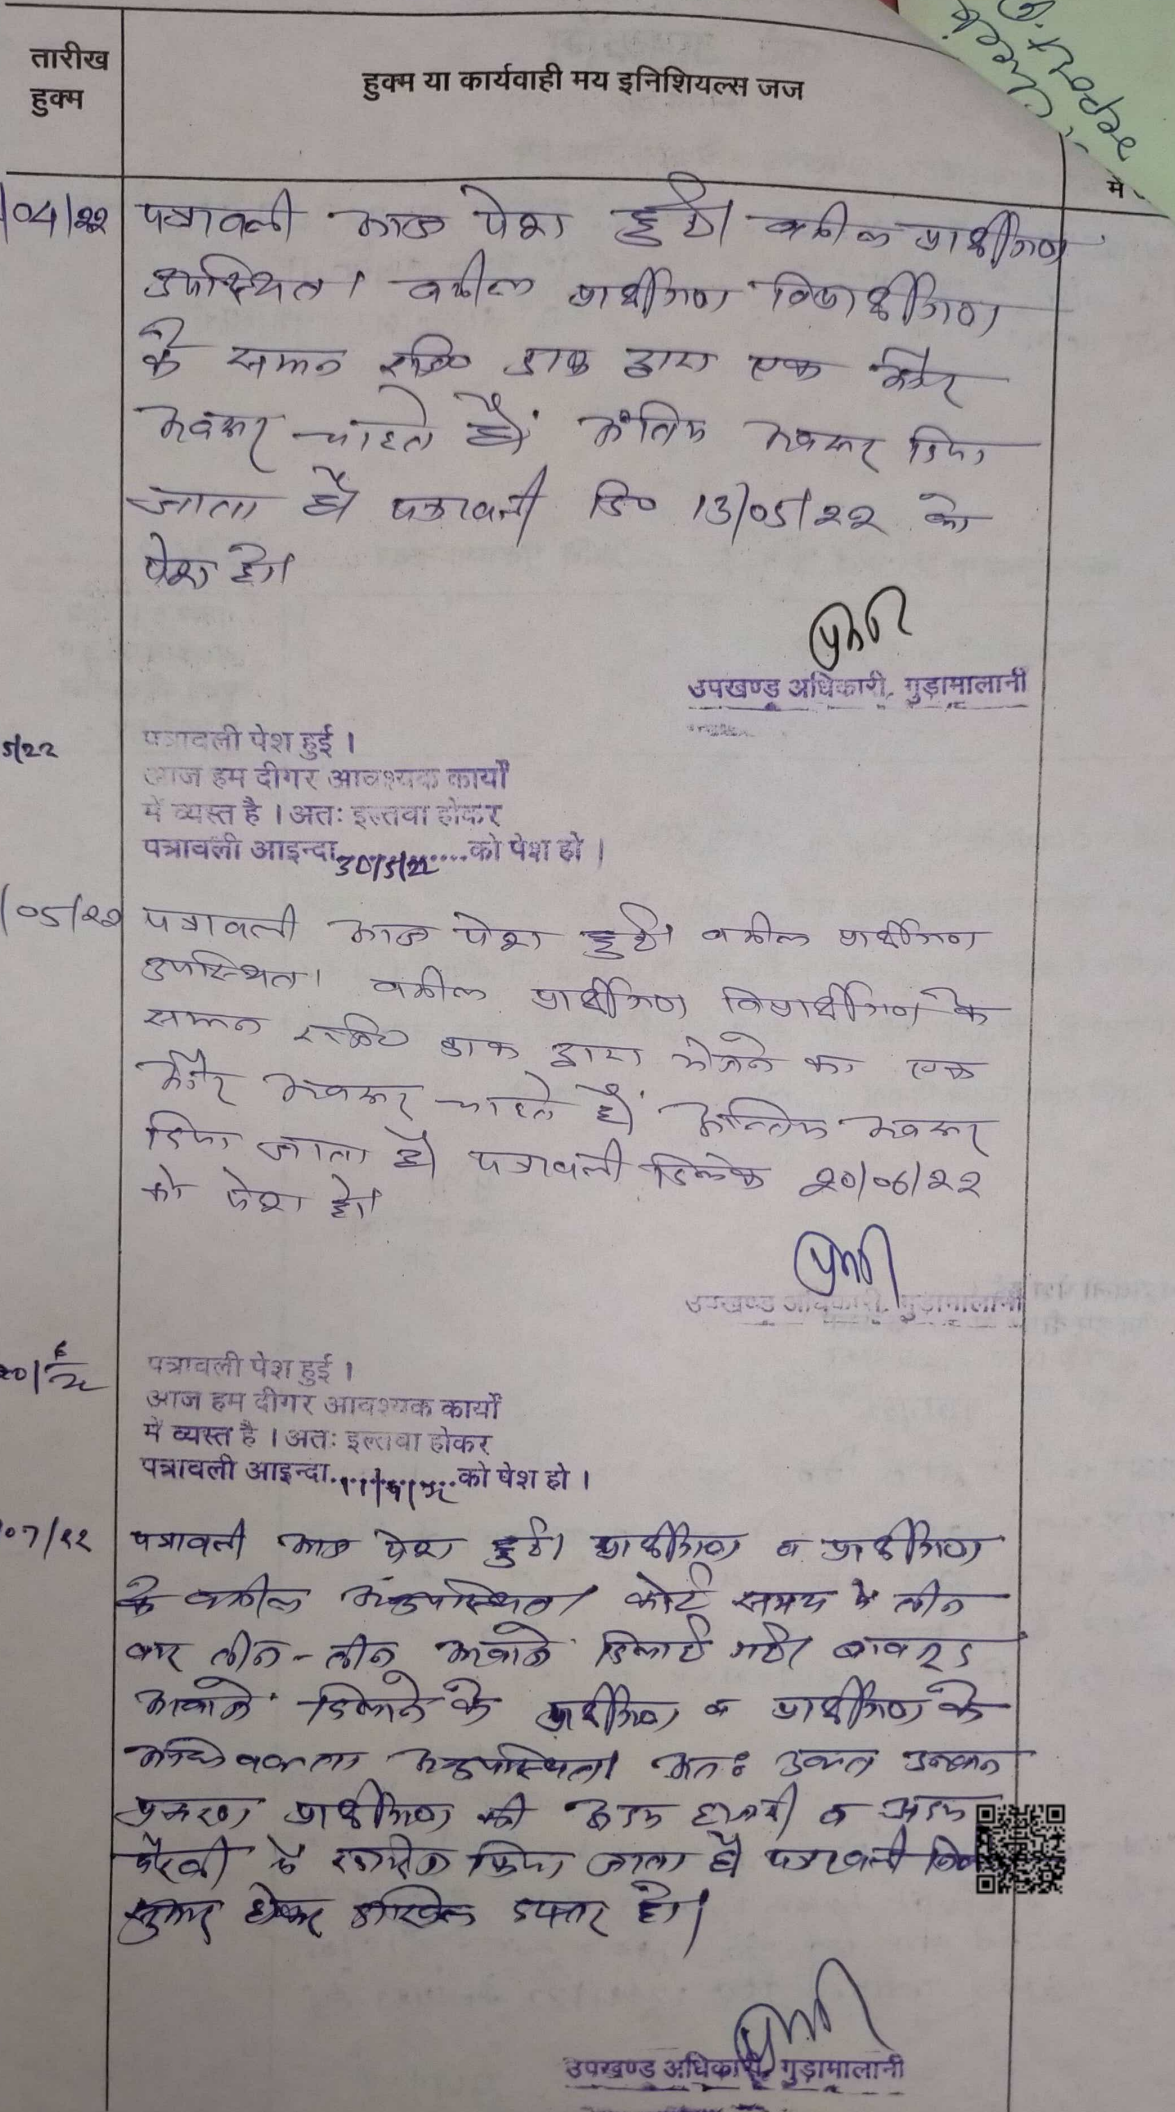 तारीख
हुक्म
हुक्म या कार्यवाही मय इनिशियल्स जज
Check
report
/04/22
पत्रावली आज पेश हुई। वकील प्रार्थीगण
उपस्थित। वकील प्रार्थीगण विप्रार्थीगण
के समन रजि० डाक द्वारा एक और
अवसर चाहते हैं। अंतिम अवसर दिया
जाता है पत्रावली दि० 13/05/22 को
पेश हो।
उपखण्ड अधिकारी, गुड़ामालानी
5/22
पत्रावली पेश हुई ।
आज हम दीगर आवश्यक कार्यों
में व्यस्त है । अतः इल्तवा होकर
पत्रावली आइन्दा 30/5/22 को पेश हो ।
/05/22
पत्रावली आज पेश हुई। वकील प्रार्थीगण
उपस्थित। वकील प्रार्थीगण विप्रार्थीगण के
समन रजि० डाक द्वारा भेजने का एक
और अवसर चाहते है। अन्तिम अवसर
दिया जाता है। पत्रावली दिनांक 20/06/22
को पेश हो।
उपखण्ड अधिकारी, गुड़ामालानी
20/6/22
पत्रावली पेश हुई ।
आज हम दीगर आवश्यक कार्यों
में व्यस्त है । अतः इल्तवा होकर
पत्रावली आइन्दा 11/7/22 को पेश हो ।
07/22
पत्रावली आज पेश हुई। प्रार्थीगण व प्रार्थीगण
के वकील अनुपस्थित। कोर्ट समय में तीन
बार तीन-तीन आवाजे दिलाई गई। बावजूद
आवाजे दिलाने के प्रार्थीगण व प्रार्थीगण के
अधिवक्ता अनुपस्थित। अतः उक्त उनवान
प्रकरण प्रार्थीगण की अदम हाजरी व अदम
पैरवी में खारीज किया जाता है पत्रावली
शुमार होकर दाखिल दफ्तर हो।
उपखण्ड अधिकारी, गुड़ामालानी